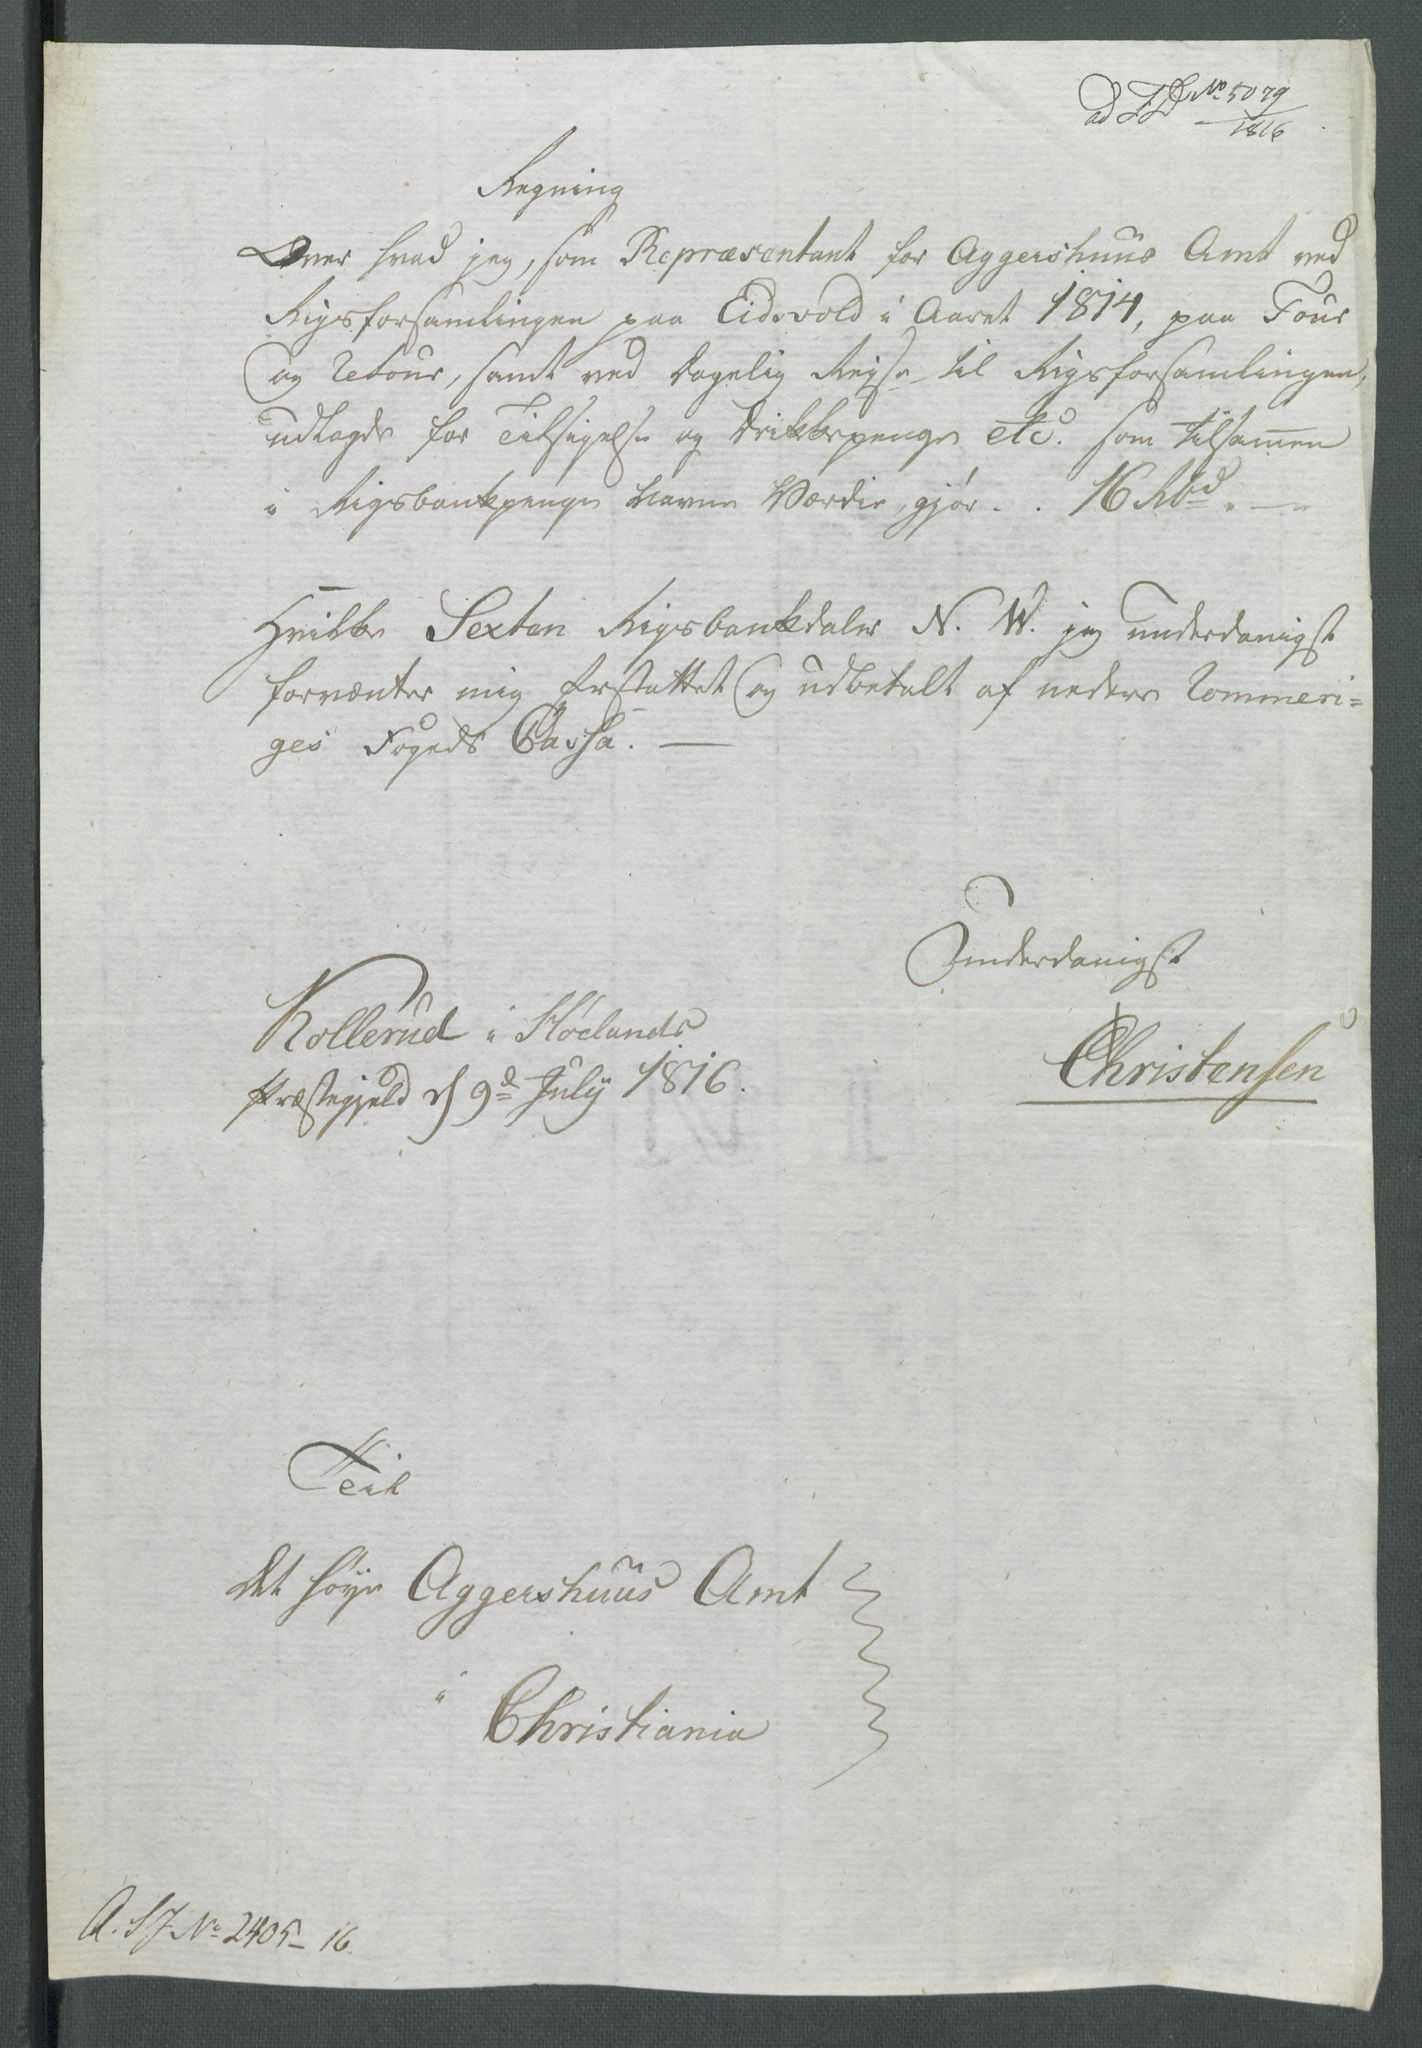 ad No 5079
1816
Regning
Over hvad jeg, som Repræsentant for Aggershuus Amt ved
Rigsforsamlingen paa Eidsvold i Aaret 1814, paa Tour
og Retour, samt ved dagelig Rejse til Rigsforsamlingen,
udlagde for Tilsigelse og Drikkepenge etc. som tilsamen
i Rigsbankpenge Navne Værdie, gjør . . 16 Rbd " — "
Hvilke Sexten Rigsbankdaler N. W. jeg underdanigst
forventer mig erstattet og udbetalt af nedere Rommeri=
ges Fogeds Cassa. —
Underdanigst
Kollerud i Hølands
Christensen
Præstegjeld d 9de July 1816.
Teil
Det høye Aggershuus Amt
i
Christiania
A. S J. No 2405 – 16.